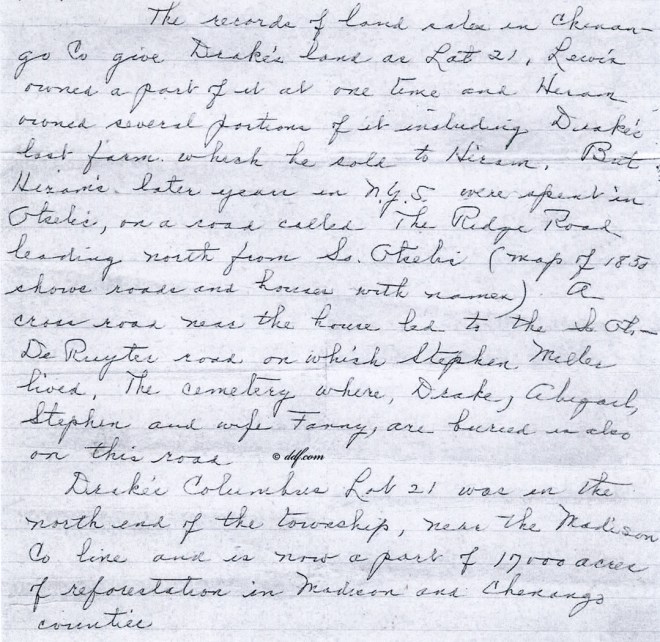 The records of land sales in Chenan-
go Co give Drake's land as Lot 21, Lewis
owned a part of it at one time and Hiram
owned several portions of it including Drake's
last farm. which he sold to Hiram. But
Hiram's later years in N.Y.S. were spent in
Otselic, on a road called The Ridge Road
leading north from So. Otselic (map of 1850
shows roads and houses with names). A
cross road near the house led to the So Ots-
De Ruyter road on which Stephen Miller
lived, The cemetery where, Drake, Abigail,
Stephen and wife Fanny, are buried is also
on this road
© ddf.com
Drake's Columbus Lot 21 was in the
north end of the township, near the Madison
Co line and is now a part of 17000 acres
of reforestation in Madison and Chenango
counties